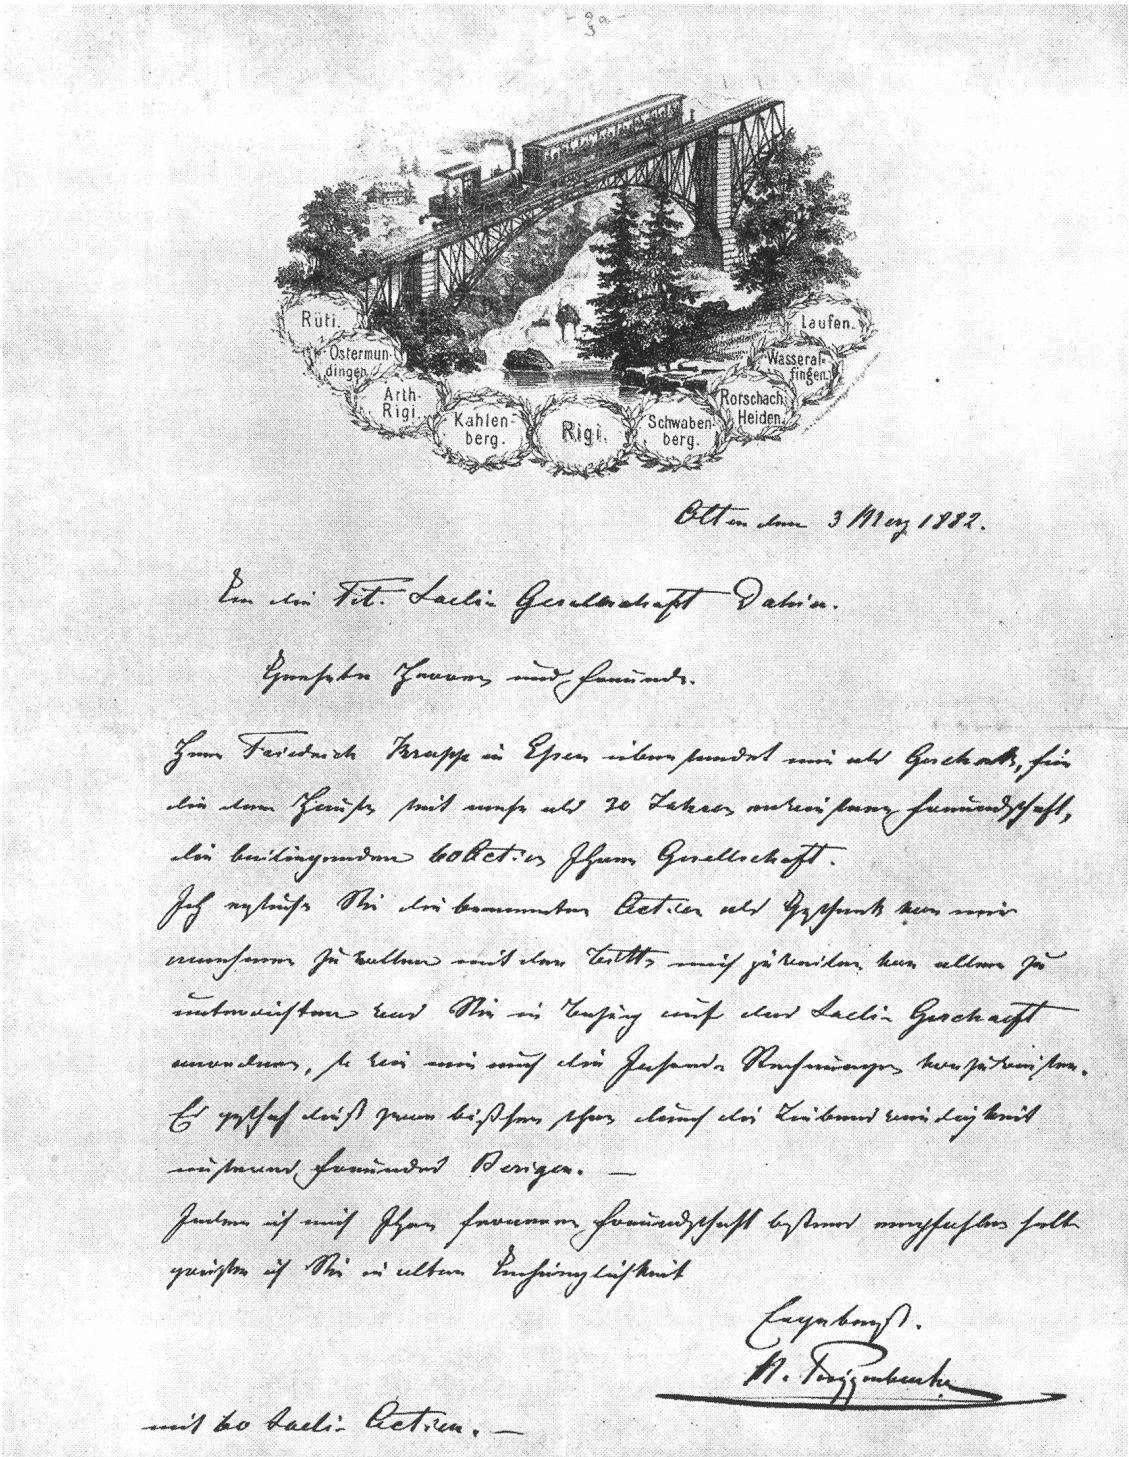 - 3a -
Rüti.
Ostermun-
dingen
Arth-
Rigi.
Kahlen-
berg.
Rigi.
Schwaben-
berg.
Rorschach
Heiden.
Wasseral-
fingen.
Laufen.
Olten den 3 Merz 1882.
An die Tit. Saelis Gesellschaft Dahier.
Geehrte Herren und Freunde.
Herr Friedrich Krupp in Essen übersendet mir als Geschenk, für
die dem Hause seit mehr als 20 Jahren erwiesene Freundschaft,
die beiliegenden 60 Actien Ihrer Gesellschaft.
Ich ersuche Sie die benannten Actien als Geschenk von mir
annehmen zu wollen mit der Bitte mich zuweilen von allem zu
unterrichten was Sie in Bezug auf das Saelis Geschaeft
anordnen, so wie mir auch die Jahres Rechnungen vorzuweisen.
Es geschah dieß zwar bißher schon durch die Liebenswürdigkeit
unseres Freundes Berigen. —
Indem ich mich Ihrer ferneren Freundschaft bestens empfohlen halte
grüße ich Sie in alter Anhänglichkeit
Ergebenst.
N. Riggenbach
mit 60 Saelis Actien. —